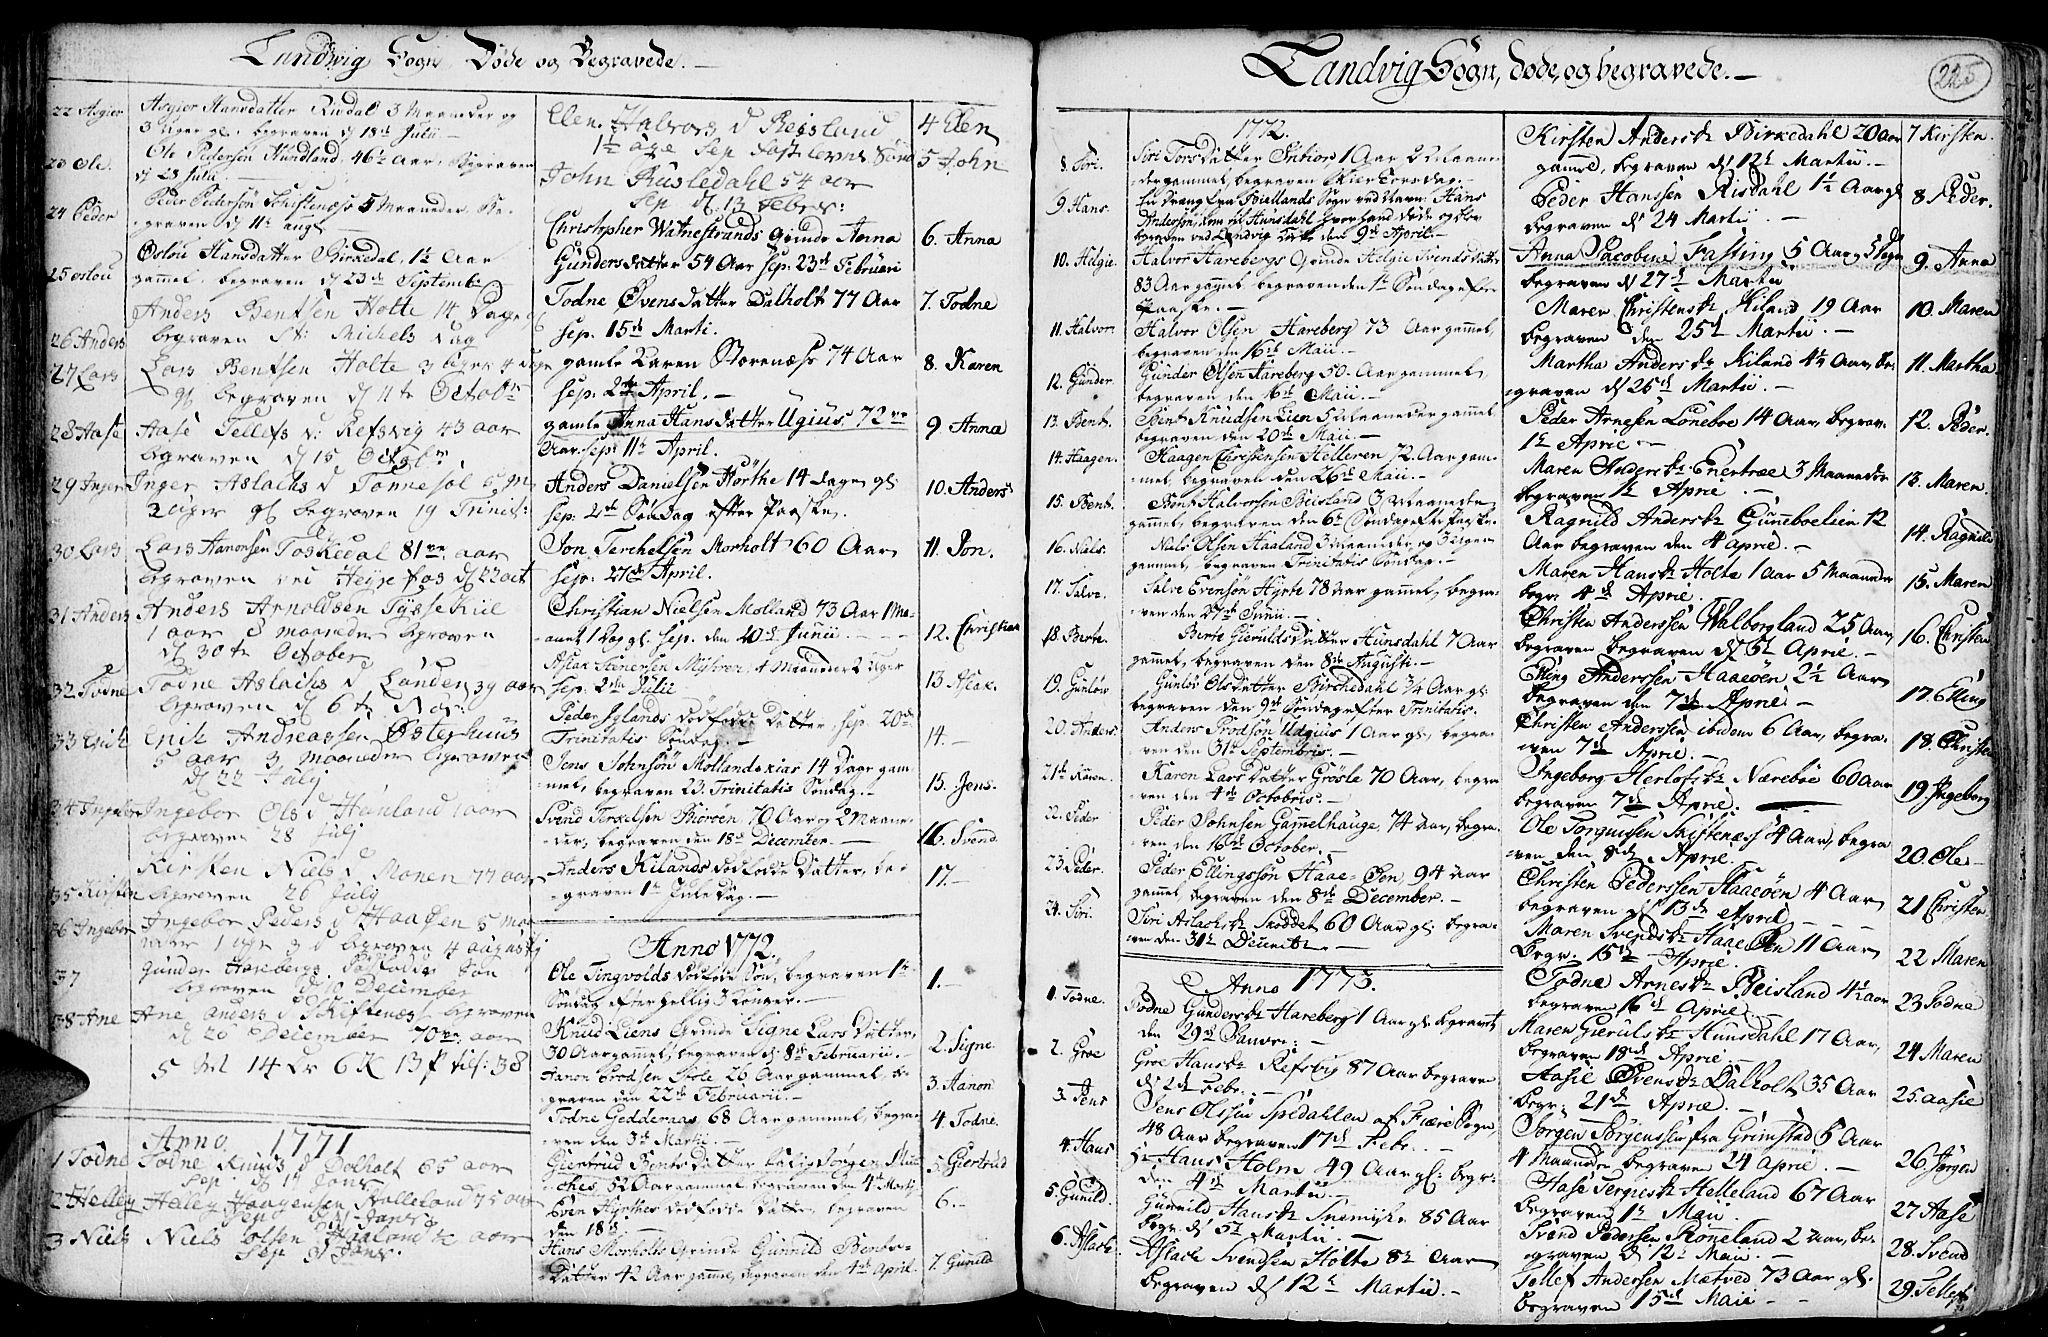 Landwig Sogn, Døde og Begravede. —
22 Asgier
Asgier Hansdatter Risdal 3 Maaneder og
3 Uger gl. begraven d 18de Julii —
23 Ole.
Ole Pedersen Hundland, 46½ Aar, Begraven
d 23 Julii. —
24 Peder
Peder Pedersøn Schiftenæs 5 Maaneder. Be-
graven d 11te aug
25 oslou
Oslou Hansdatter Birkedal, 1½ Aar
gammel, begraven d 23de Septembr
26 Anders
Anders Bentsen Holte 14 Dage gl
begraven St: Michels dag
27 Lars
Lars Bentsen Holte 3 Uger 4 dage
gl begraven d 4te Octobr
28 Aase
Aase Tellefs d: Refsvig 43 aar
begraven d 15 Octobr
29 Inger
Inger Aslachs d Tønnesøl 6 M
2 Uger gl begraven 19 Trinit:
30 Lars
Lars Aanonsen Toskedal 81 aar
begraven ved Heije fos d 22 oct
31 Anders
Anders Arnoldsen Tyssekiil
1 aar 2 maaneder begraven
d 30te October
32 Todne
Todne Aslachs d Landen 39 aar
begraven d 6te Nov:
33 Erik
Erik Andreassen Østerhuus
5 aar 3 maaneder begraven
d 22 July
34 Ingebor
Ingebor Ols d Heinland 1 aar
begraven 28 July
35 Kirsten
Kirsten Niels d Monen 77 aar
begraven 26 July
36 Ingebor
Ingebor Peders d Haaøen 5 Maa
neder 1 uge gl begraven 4 augusty
37
Gunder Harebergs dødfødde Søn
begraven d 10 December
38 Ane
Ane anders d Skiftenæs begraven
d 26 December 70 aar
5 M 14 Dr 6 K 13 P til: 38
Anno 1771
1 Todne
Todne Knuds d Dolholt 65 aar
Sep d 14 Janv
2 Helley
Helley Haagensen Helleland 75 aar
Sep d Janv
3 Niels
Niels Olsen Hialand aar
Sep d Janv.
Elen Halvors d Reisland
1½ age Sep fastelavns Sønd
4 Elen
John Rusledahl 54 aar
Sep d. 13 Febr:
5 John
Christopher Watnestrands Qvinde Anna
Gundersdatter 54 Aar sep. 23de Februari
6. Anna
Todne Øvensdatter Dalholt 77 Aar
sep. 15de Marti.
7. Todne
gamle Karen Storenæss 74 Aar
sep: 2de April. —
8. Karen
gamle Anna Hansdatter Ugius 72
Aar. sep: 11te April.
9. Anna
Anders Danielsen Hørthe 14 dage gl:
sep: 2de Søndag efter Paaske.
10. Anders
Jon Terchelsen Morholt 60 Aar
sep: 27de April.
11. Jon.
Christian Nielsen Molland 73 Aar 1 Ma-
anet 1 Dag gl. sep. den 20de Junii. —
12. Christian
Aslak Stenersen Myhren 4 Maaneder 2 Uger
sep: 2den Julii
13 Aslak.
Peder Iglands dødfødde Datter, sep. 20de
Trinitatis Søndag. —
14. —
Jens Johnsøn Mollandskias 14 Dage gam-
mel, begraven 23. Trinitatis Søndag. —
15. Jens.
Svend Terkelsen Biorøen 70 Aar og 2 Maane-
der, begraven den 18de December. —
16. Svend
Anders Kilands dødfødde Datter, be-
graven 1te Jule Dag. —
17. —
Anno 1772.
Ole Tingvolds dødfødde Søn, begraven 1te
Søndag efter hellig 3 Konger. —
1. —
Knud Liens Qvinde Signe Lars Datter,
30 Aar gammel, begraven d: 8de Februarii. —
2. Signe
Aanon Brodsen Stole 26 Aar gammel, be-
graven den 22de Februarii. —
3. Aanon
Todne Geddernæs 68 Aar gammel, begra-
ven den 3de Martii. —
4. Todne
Giertrud Bents Datter Jørgen Mun
ches 52 Aar gammel begraven den 4de Martii
5. Giertrud
Even Hyrthes dødfødde Datter, begraven
den 18de
6. —
Hans Morholts Qvinde Gunnild Bents-
Datter 42 Aar gamme, begraven den 4de April.
7. Gunild
Landvig Sogn, døde, og begravede. —
225
1772.
8. Siri.
Siri Torsdatter Inbior 1 Aar 2 Maane-
der gammel, begraven Skier Torsdag. —
9. Hans.
En Dreng fra Biellands Sogn ved Navn Hans
Anderssøn, kom til Hunsdahl hvor hand døde og bør
begraven ved Landvig Kirke den 9de April. —
10. Helgie.
Halvor Harebergs Qvinde Helgie Svendsdatter
83 Aar gammel begraven den 1te Søndag efter
Paaske. —
11. Halvor.
Halvor Olsen Hareberg 73 Aar gammel,
begraven den 16de Maii. —
12. Gunder.
Gunder Olsen Hareberg 50 Aar gammel,
begraven den 16de Maii. —
13. Bent.
Bent Knudsen Lien 5 Maaneder gammel
begraven den 20de Maii —
14. Haagen.
Haagen Christensen Helleren 72 Aar gam-
mel, begraven den 26de Maii. —
15. Bent.
Bent Halvorsen Beisland 3 Maaneder
gammel, begraven den 6te Søndag efter Paaske.
16. Niels.
Niels Olsen Haaland 3 Maaneder og 3 Uger
gammel, begraven Trinitatis Søndag. —
17. Salve.
Salve Evensøn Hyrte 78 Aar gammel, begra-
ven den 27de Junii. —
18. Berte.
Berte Gieruldsdatter Hunsdahl 7 Aar
gammel, begraven den 8de Augusti. —
19. Gunlow
Gunlow Olsdatter Birchedahl 3/4 Aar gl:
begraven den 9de Søndag efter Trinitatis.
20. Anders.
Anders Brodsøn Udgiüs 1 Aar gl, begra-
ven den 31te Septembris. —
21. Karen.
Karen Larsdatter Grosle 70 Aar, begra
ven den 4de Octobris. —
22. Peder
Peder Johnsen Gammelhauge, 74 Aar, begra-
ven den 16de October. —
23. Peder.
Peder Ellingssøn Haae-Øen 94 Aar
gammel, begraven den 8de December. —
24. Siri.
Siri Aslachsdr Skoddet 60 Aar gl: begra-
ven den 31te Decembr —
Anno 1773.
1. Todne.
Todne Gundersdr Hareberg 1 Aar gl: begravet
den 29de Januv: —
2. Groe
Groe Hansdr Refsvig 87 Aar begraven
d 2de Febr: —
3. Jens
Jens Olssøn Spedallen af Fiære Sogn,
48 Aar begraven 17de Febr —
4. Hans
Sr Hans Holm 49 Aar gl: begr:
den 4de Martii —
5. Gunild
Gunnild Hansdr Inemyhr 85 Aar
begr. d 5te Martii. —
6. Aslack.
Aslack Svendsen Holte 8½ Aar
begraven d 12te Martii —
Kirsten Andersdr Birkedahl 20 aar
gammel, begraven d 12te Martii. —
7 Kirsten.
Peder Hanssen Risdahl 1½ Aar gl
begraven d 24 Martii —
8 Peder.
Anna Jacobine Fasting 5 Aar 9 Dage
begraven d 27de Martii
9. Anna
Maren Christensdr Kiland 19 Aar
begraven den 25de Martii —
10. Maren
Martha Andersdr Kiland 4½ Aar, be-
graven d 26de Martii. —
11. Martha
Peder Arnesen Lønebøe 14 Aar, begrav.
1te Aprie —
12. Peder.
Maren Andersdr Enertræe 3 Maaneder
begraven 1te Aprie —
13. Maren.
Ragnild Andersdr Gunneboelien 12
Aar begraven den 4 aprie. —
14. Ragnild
Maren Hansdr Holte 1 Aar 5 Maaneder
begr: 4de Aprie.
15. Maren
Christen Anderssen Walborgland 25 Aar,
begraven begraven d 5te Aprie. —
16. Christen
Elling Anderssen Haaeøen 2½ Aar
begraven den 7de Aprie —
17. Elling
Christen Anderssen ibidem 6 Aar, begra-
ven 7de Aprie —
18. Christen
Ingeborg Herlofsdr Nærebøe 60 Aar
begraven 7de Aprie.
19 Ingeborg
Ole Torgussen Skiftenæss 4 Aar, begra
ven den 8de Aprie. —
20. Ole
Christen Pederssen Haaeøen 4 Aar
begraven d 13de Aprie —
21 Christen
Maren Svendsdr Haae Øen 11 Aar
Begr. 15de Aprie.
22 Maren
Todne Arnesdr Beisland 4½ aar
begraven 16de Aprie —
23 Todne
Maren Gierulsdr Hunsdahl 17 Aar,
begraven 18de Aprie —
24 Maren
Aasie Svensdr Dalholt 35 Aar
begr: 21de Aprie. —
25. Aasie
Jørgen Jørgenssen fra Grimstad 5 Aar
4 Maaneder begraven 24 aprie. —
26 Jørgen
Aase Tergiesdr Helleland 67 Aar
begraven 1te Maii —
27 Aase
Svend Pederssen Roneland 2 Aar, be-
graven d 12te Maii —
28. Svend
Tellef Andersen Mætved 73 Aar gl:
begraven 15de Maii —
29. Tellef